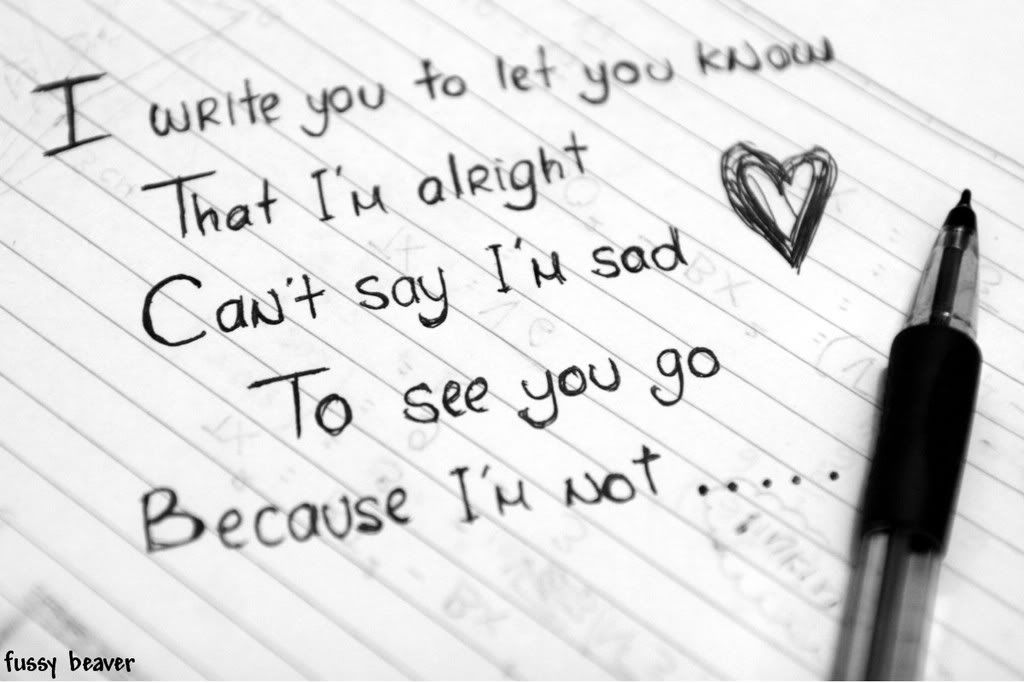 I write you to let you know
That I'm alright
Can't say I'm sad
To see you go
Because I'm not .....
fussy beaver